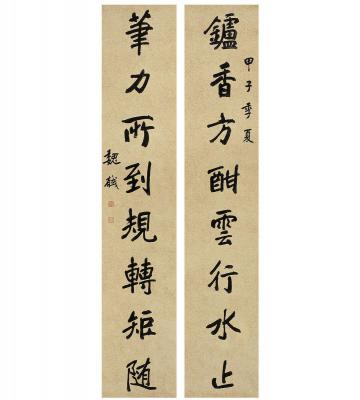 鑪香方酣雲行水止
甲子季夏
筆力所到規轉矩随
魏戫